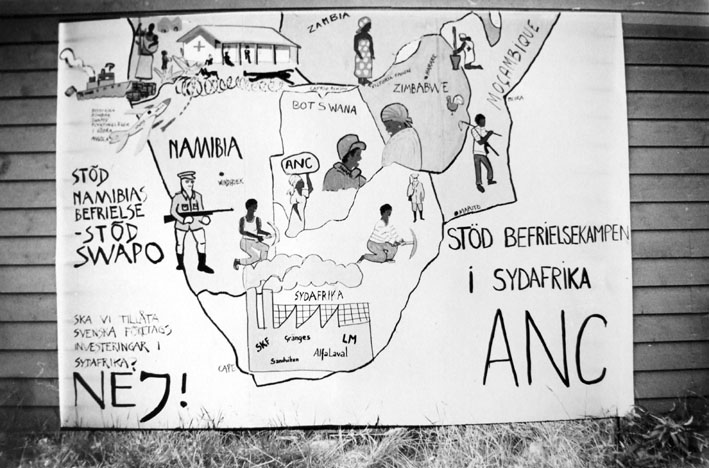 ZAMBIA
MOÇAMBIQUE
ZIMBABWE
HARARE
BEIRA
BOTSWANA
NAMIBIA
WINDHOEK
ANC
MAPUTO
ANGOLA
STÖD
NAMIBIAS
BEFRIELSE
-STÖD
SWAPO
STÖD BEFRIELSEKAMPEN
I SYDAFRIKA
ANC
SYDAFRIKA
SKF
Gränges
LM
Sandviken
AlfaLaval
CAPE
SKA VI TILLÅTA
SVENSKA FÖRETAGS
INVESTERINGAR I
SYDAFRIKA?
NEJ!